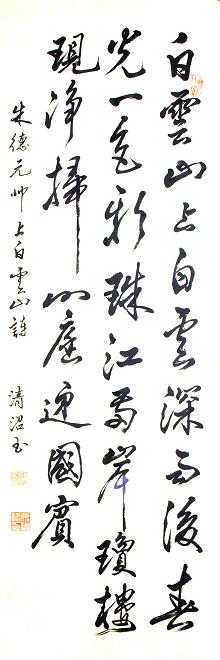 白雲山上白雲深雨後春
光一色新珠江兩岸瓊樓
現淨掃門庭迎國賓
朱德元帥上白雲山詩 清沼书